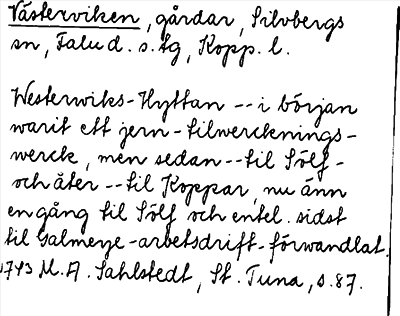 Västerviken, gårdar, Silvbergs
sn, Falu d. s. tg, Kopp. l.
Westerwiks-Hyttan -- i början
warit ett jern-tilwercknings-
werck, men sedan -- til Sölf-
och åter -- til Koppar, nu änn
en gång til Sölf och entel. sidst
til Galmeye-arbetsdrift förwandlat.
1743 M. A. Sahlstedt, St. Tuna, s. 87.